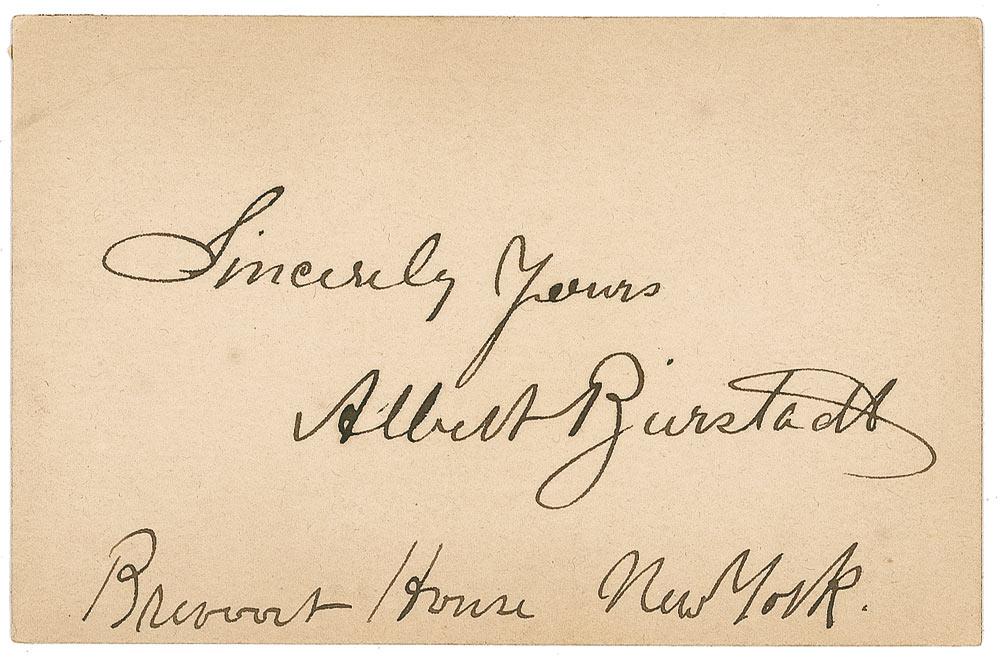 Sincerely Yours
Albert Bierstadt
Brevoort House New York.